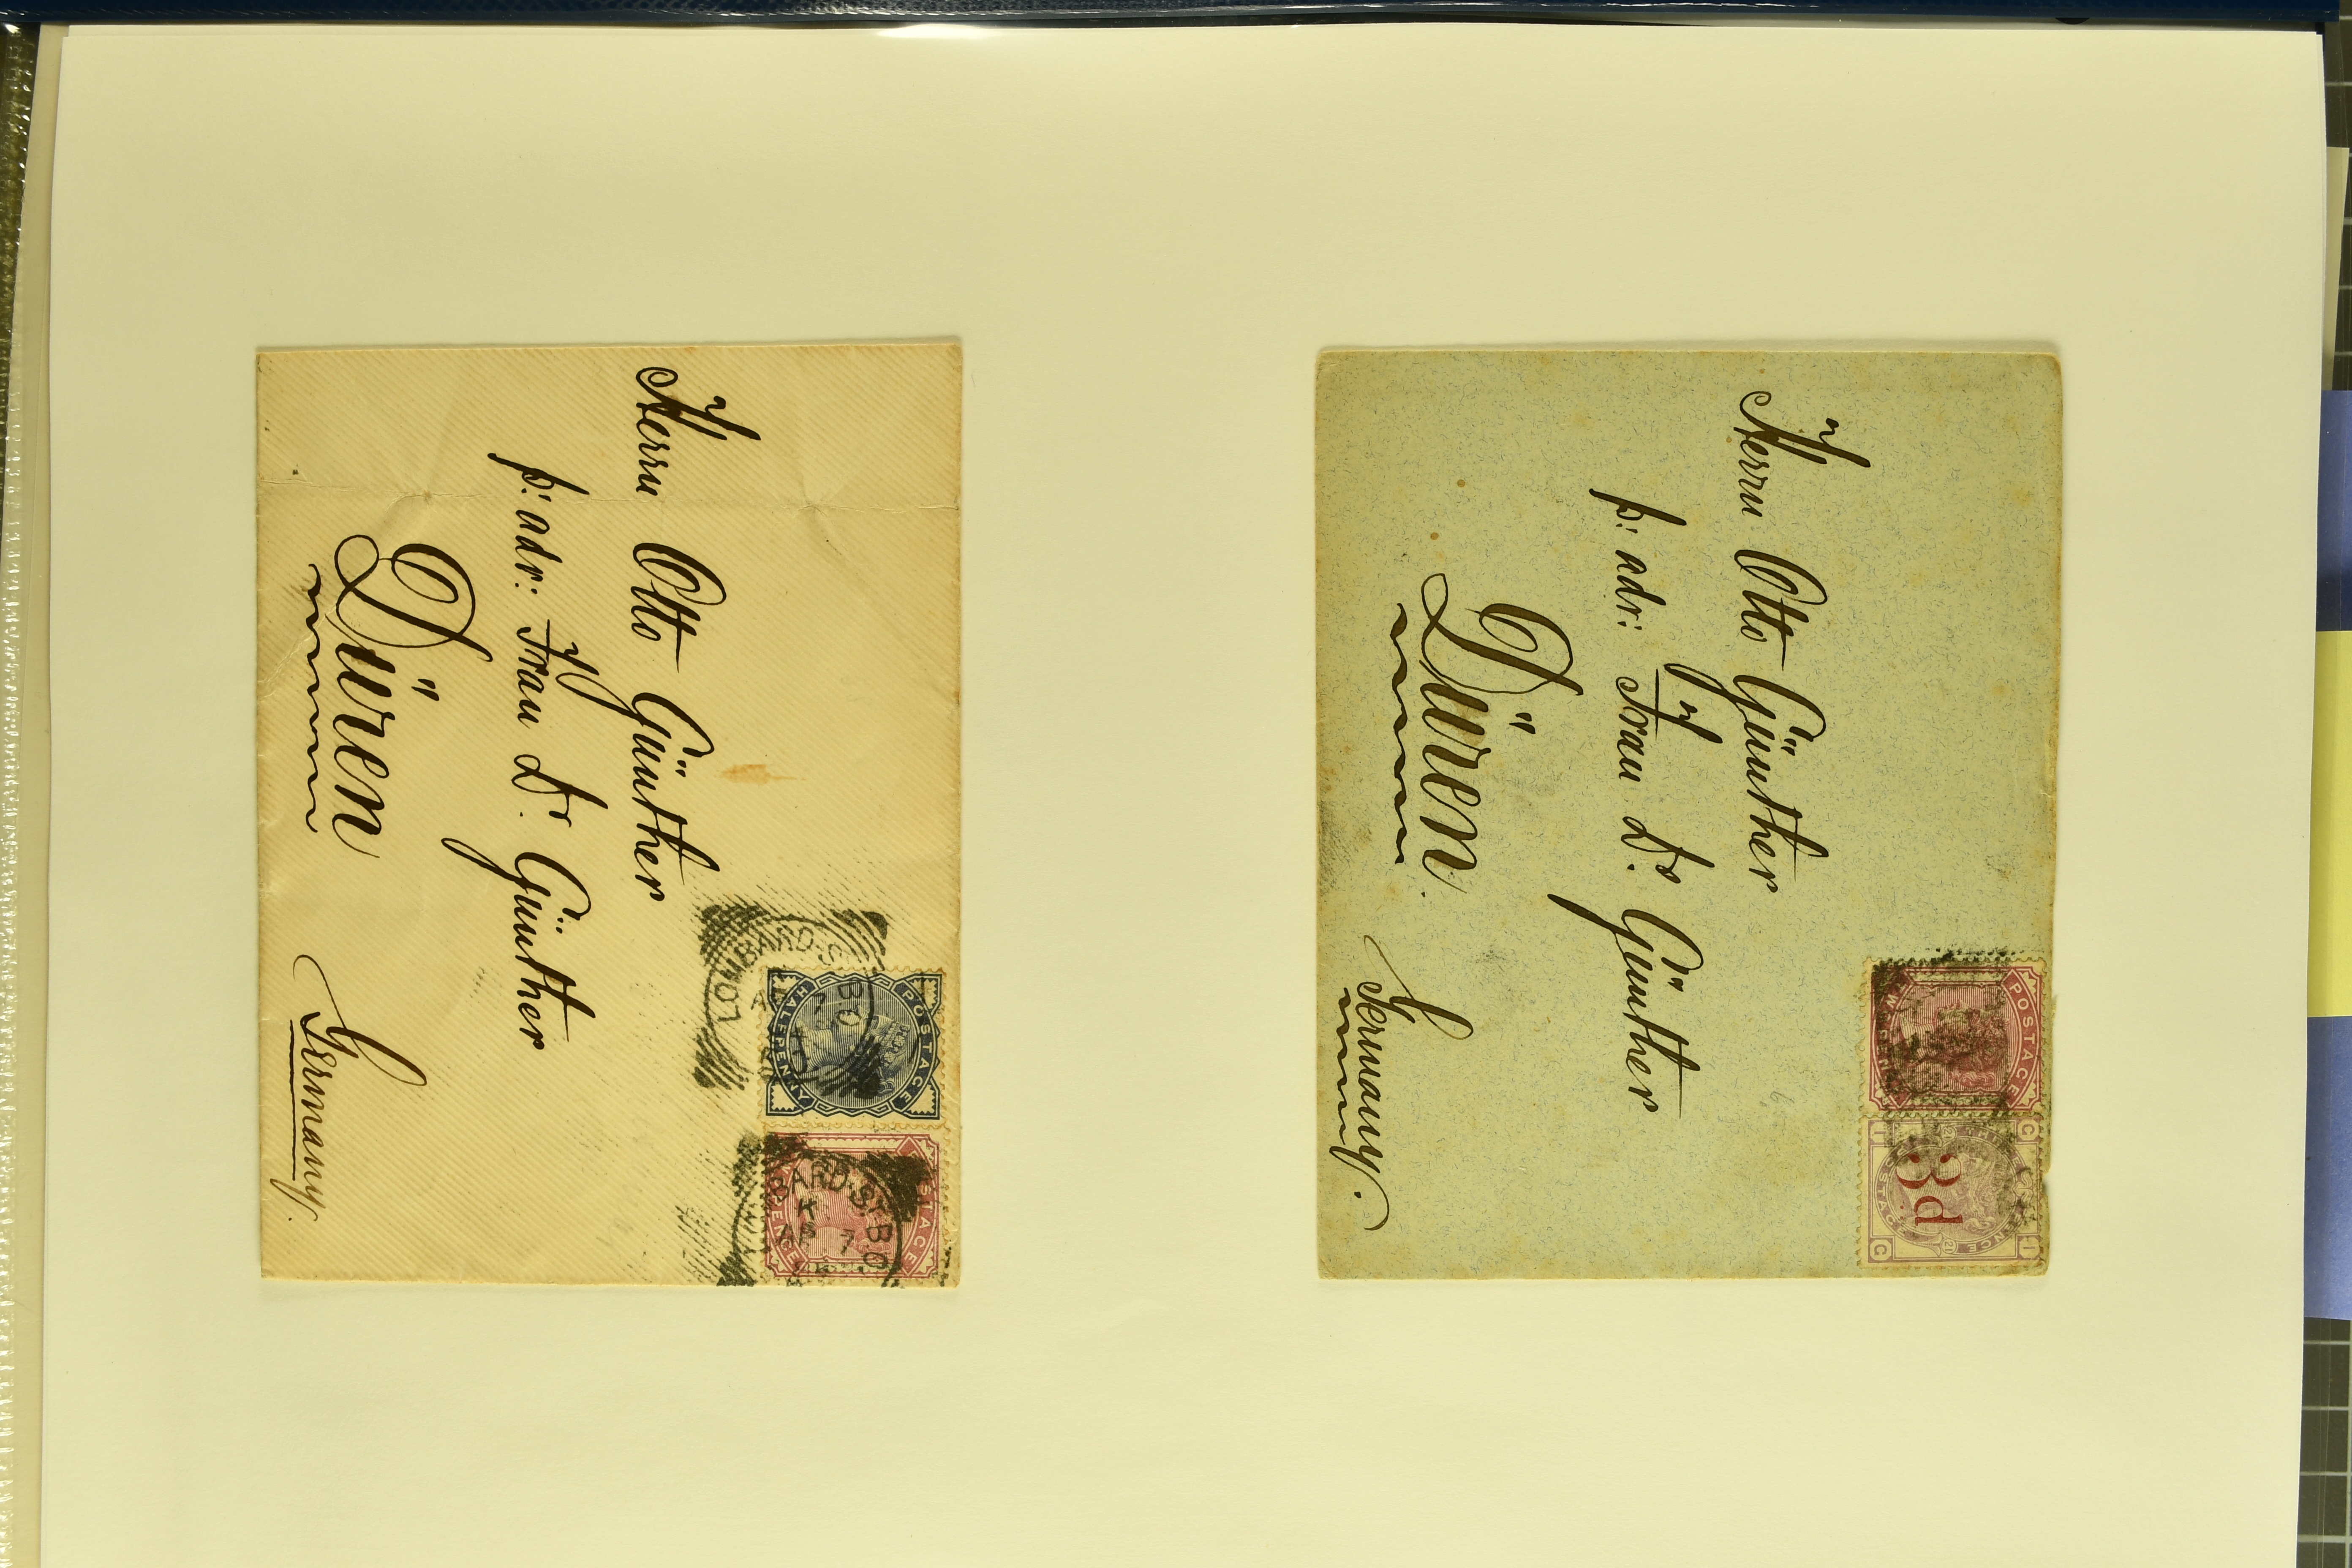 Herrn Otto Günther
p: adr: Frau Dr. Günther
Düren
Germany.
POSTAGE
HALFPENNY
LOMBARD·ST B.O
AP 7
POSTAGE
PENCE
BARD·ST B.O
K
AP 7
Herrn Otto Günther
p: adr: Frau Dr Günther
Düren.
Germany.
POSTAGE
G I
3d
POSTAGE
PENCE
21
I G